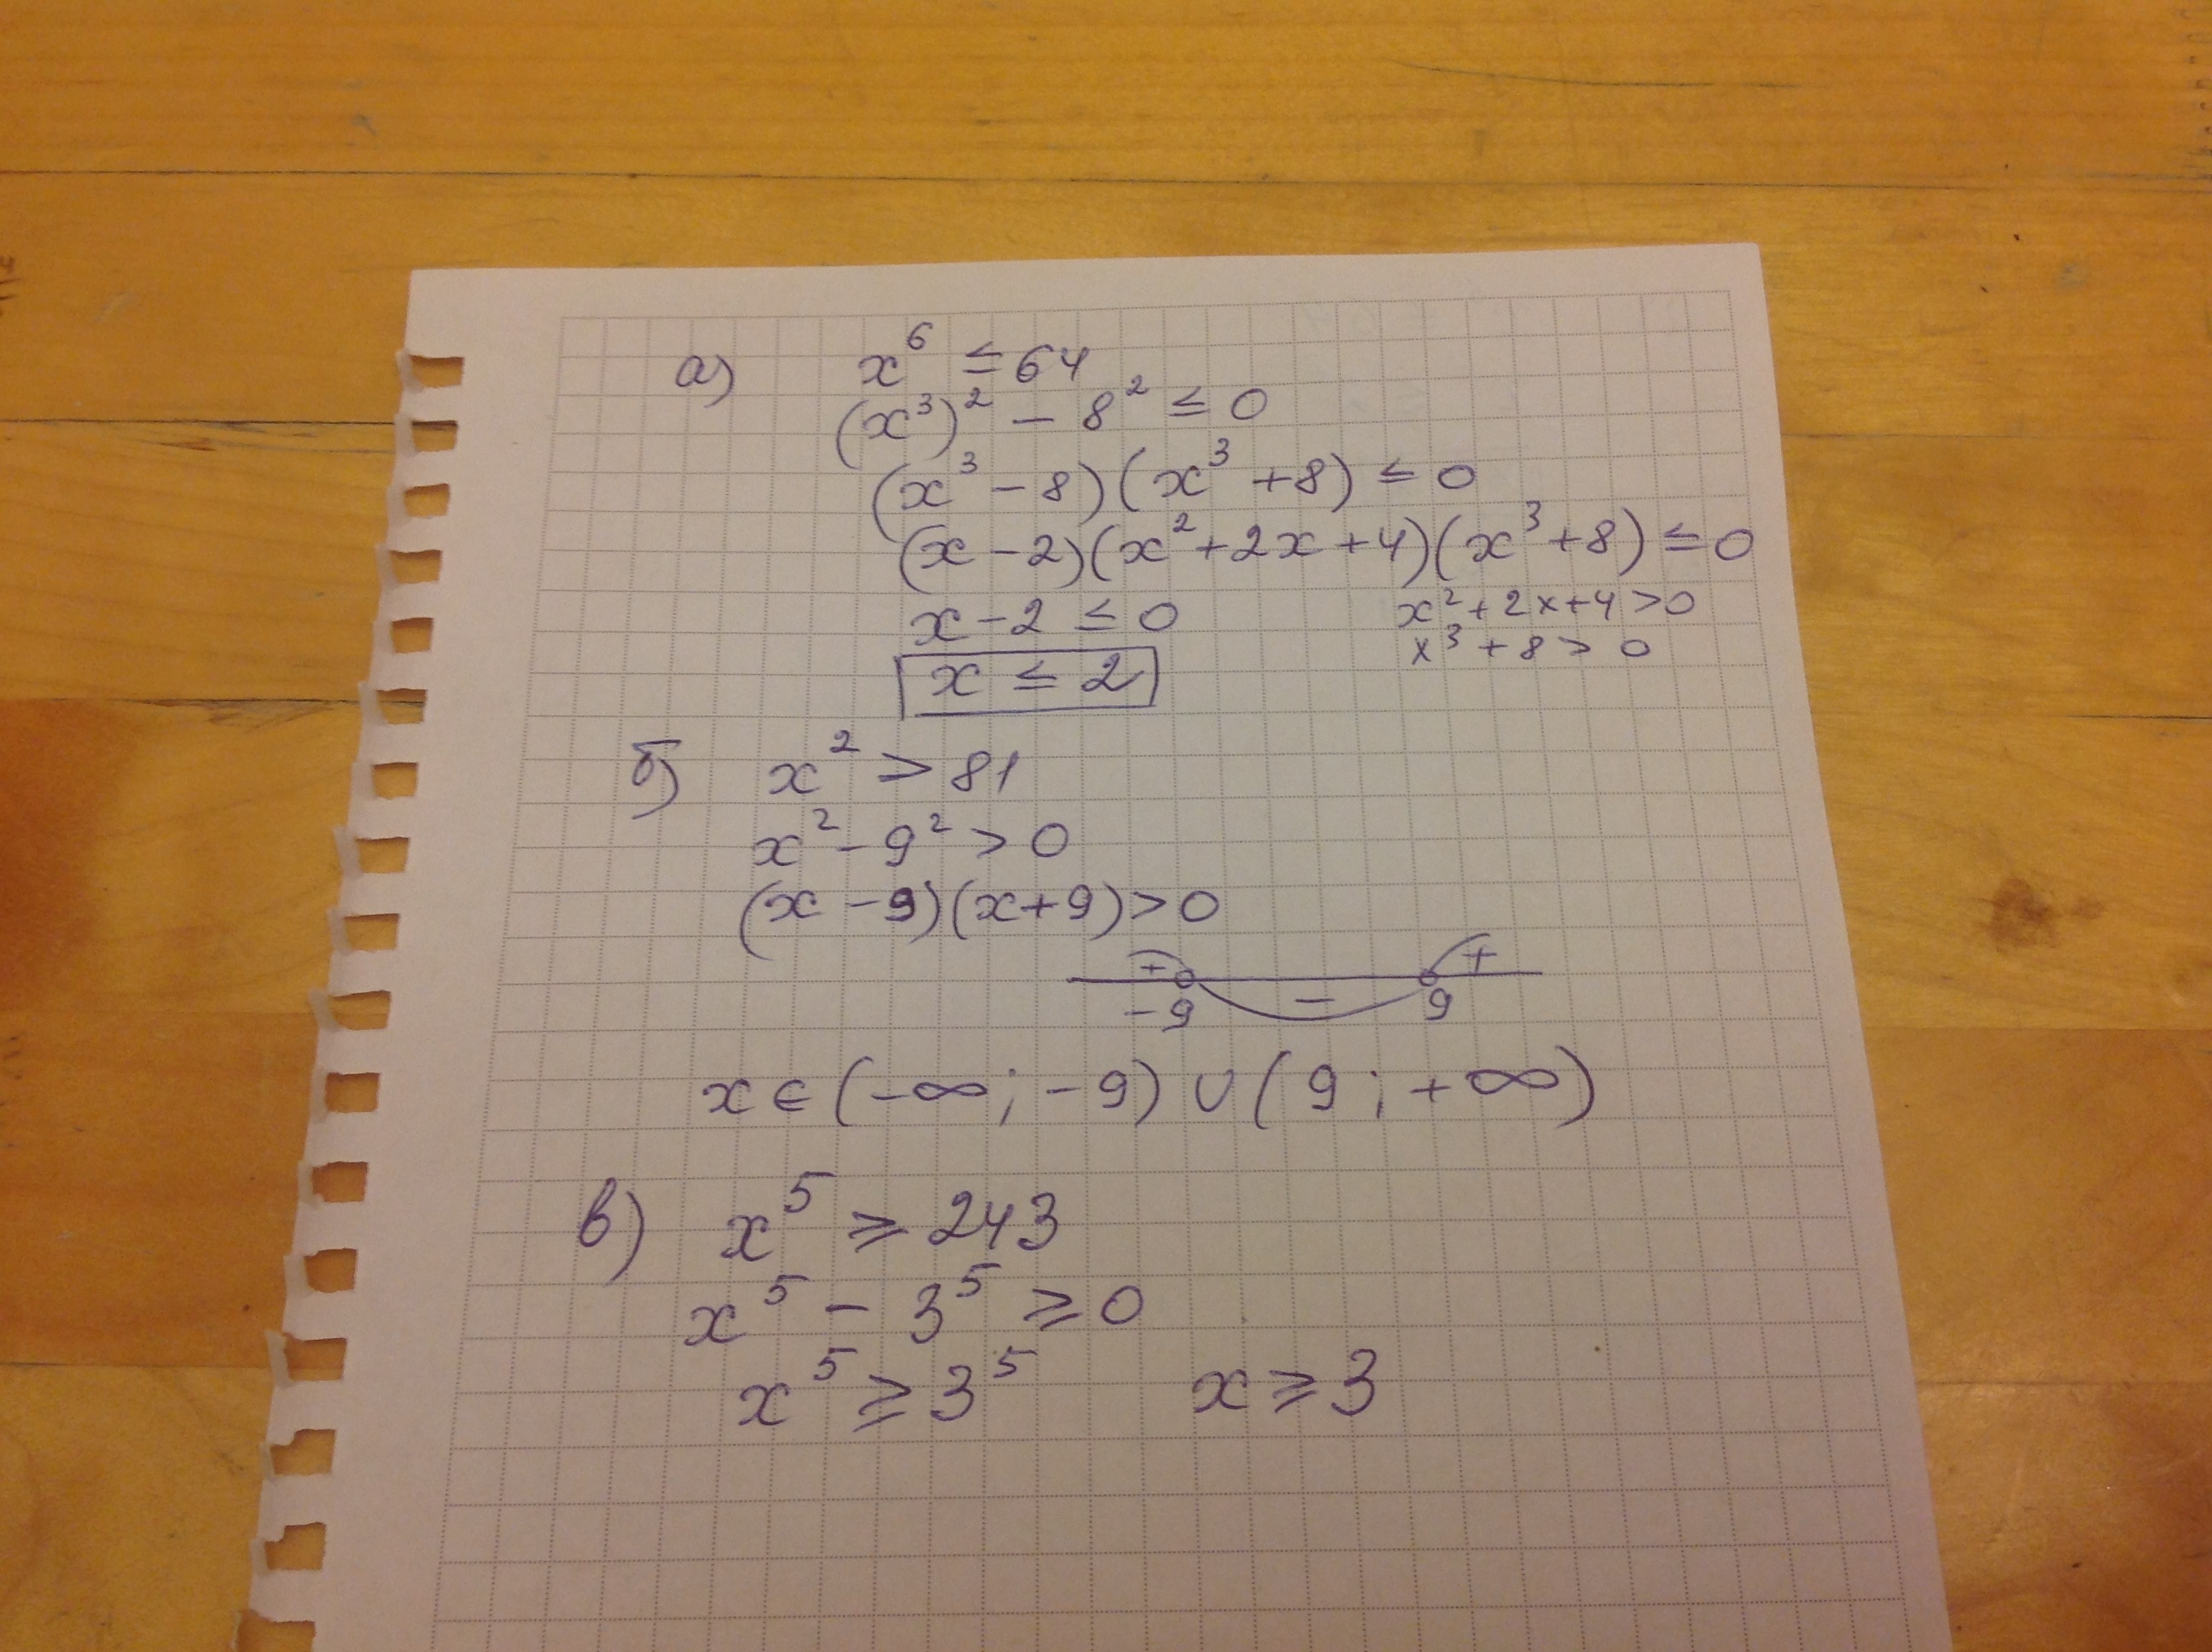 а) x⁶ ≤ 64
(x³)² − 8² ≤ 0
(x³ − 8)(x³ + 8) ≤ 0
(x − 2)(x² + 2x + 4)(x³ + 8) ≤ 0
x − 2 ≤ 0 x² + 2x + 4 > 0
x³ + 8 > 0
x ≤ 2
б) x² > 81
x² − 9² > 0
(x − 9)(x + 9) > 0
+ − +
−9 9
x ∈ (−∞; −9) ∪ (9; +∞)
в) x⁵ ≥ 243
x⁵ − 3⁵ ≥ 0
x⁵ ≥ 3⁵ x ≥ 3